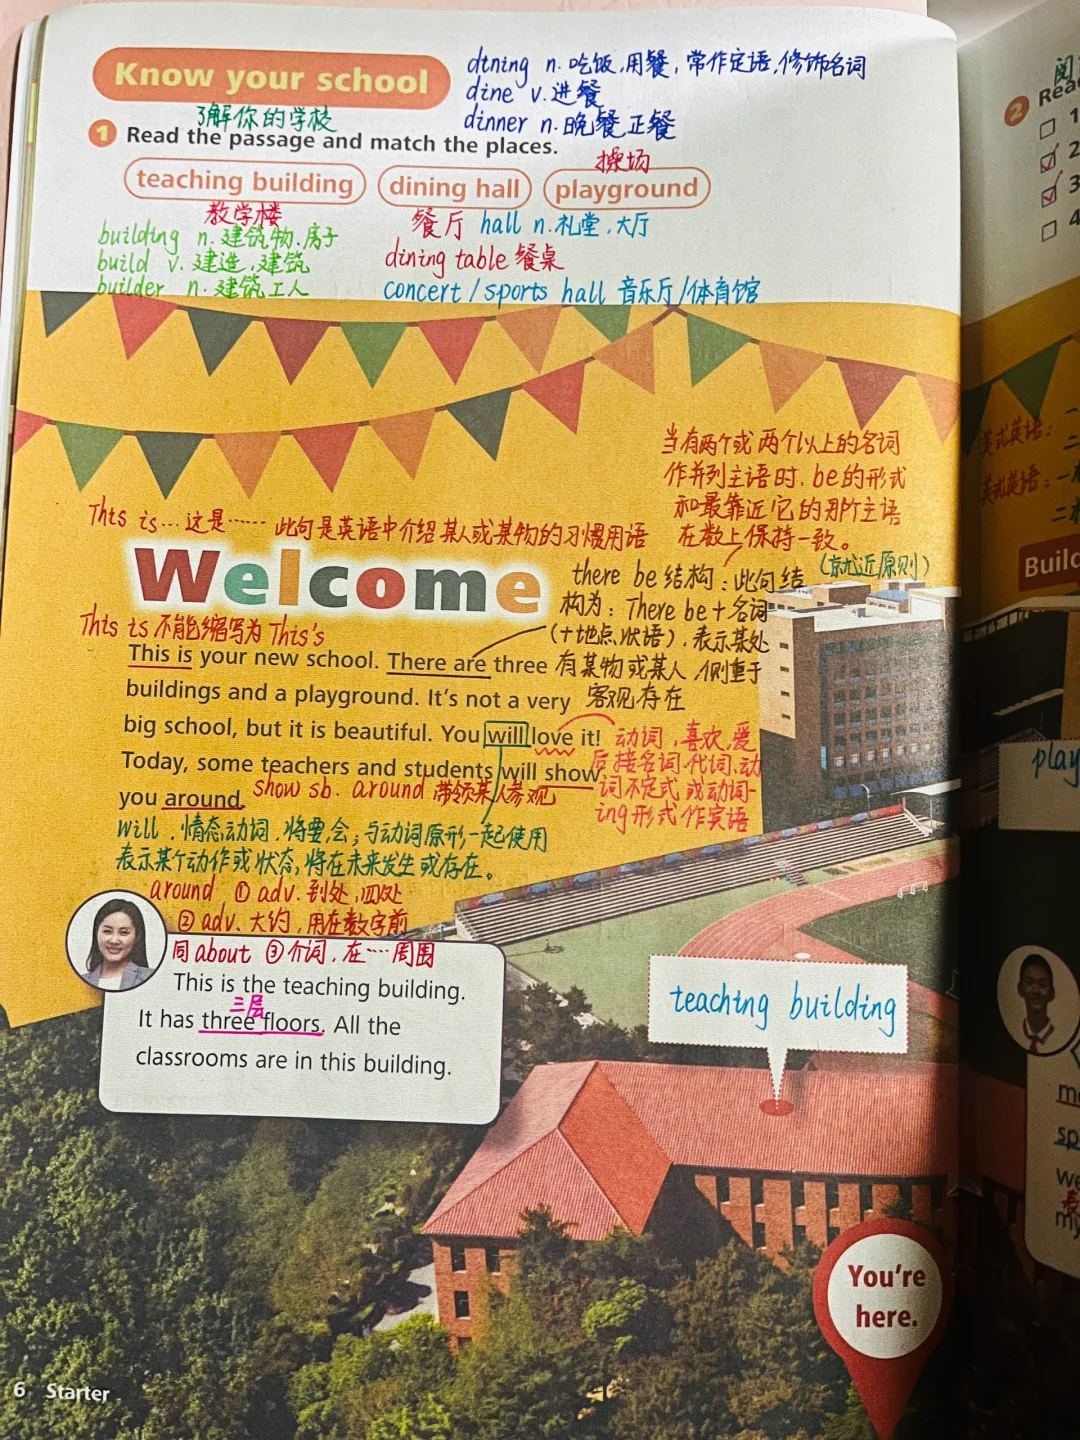 Know your school
dining n. 吃饭,用餐,常作定语,修饰名词
dine v. 进餐
dinner n. 晚餐 正餐
了解你的学校
1 Read the passage and match the places.
操场
teaching building dining hall playground
教学楼
餐厅 hall n. 礼堂,大厅
building n. 建筑物,房子
build v. 建造,建筑
dining table 餐桌
builder n. 建筑工人
concert / sports hall 音乐厅/体育馆
当有两个或两个以上的名词
作并列主语时,be的形式
和最靠近它的那个主语
在数上保持一致。
(就近原则)
This is… 这是…… 此句是英语中介绍某人或某物的习惯用语
Welcome
there be 结构:此句结
构为:There be + 名词
(+地点状语),表示某处
有某物或某人,侧重于
客观存在
This is 不能缩写为 This's
This is your new school. There are three
buildings and a playground. It's not a very
big school, but it is beautiful. You will love it!
Today, some teachers and students will show
you around.
动词,喜欢,爱
后接名词.代词.动
词不定式 或动词-
ing形式 作宾语
show sb. around 带领某人参观
will .情态动词.将要,会;与动词原形一起使用
表示某个动作或状态,将在未来发生或存在。
around ① adv. 到处,四处
② adv. 大约,用在数字前
同about ③介词,在……周围
This is the teaching building.
三层
It has three floors. All the
classrooms are in this building.
teaching building
You're
here.
6 Starter
2 Rea
1
2
3
4
英式英语:一
二
美式英语:一
二
Build
play
sp
we
my